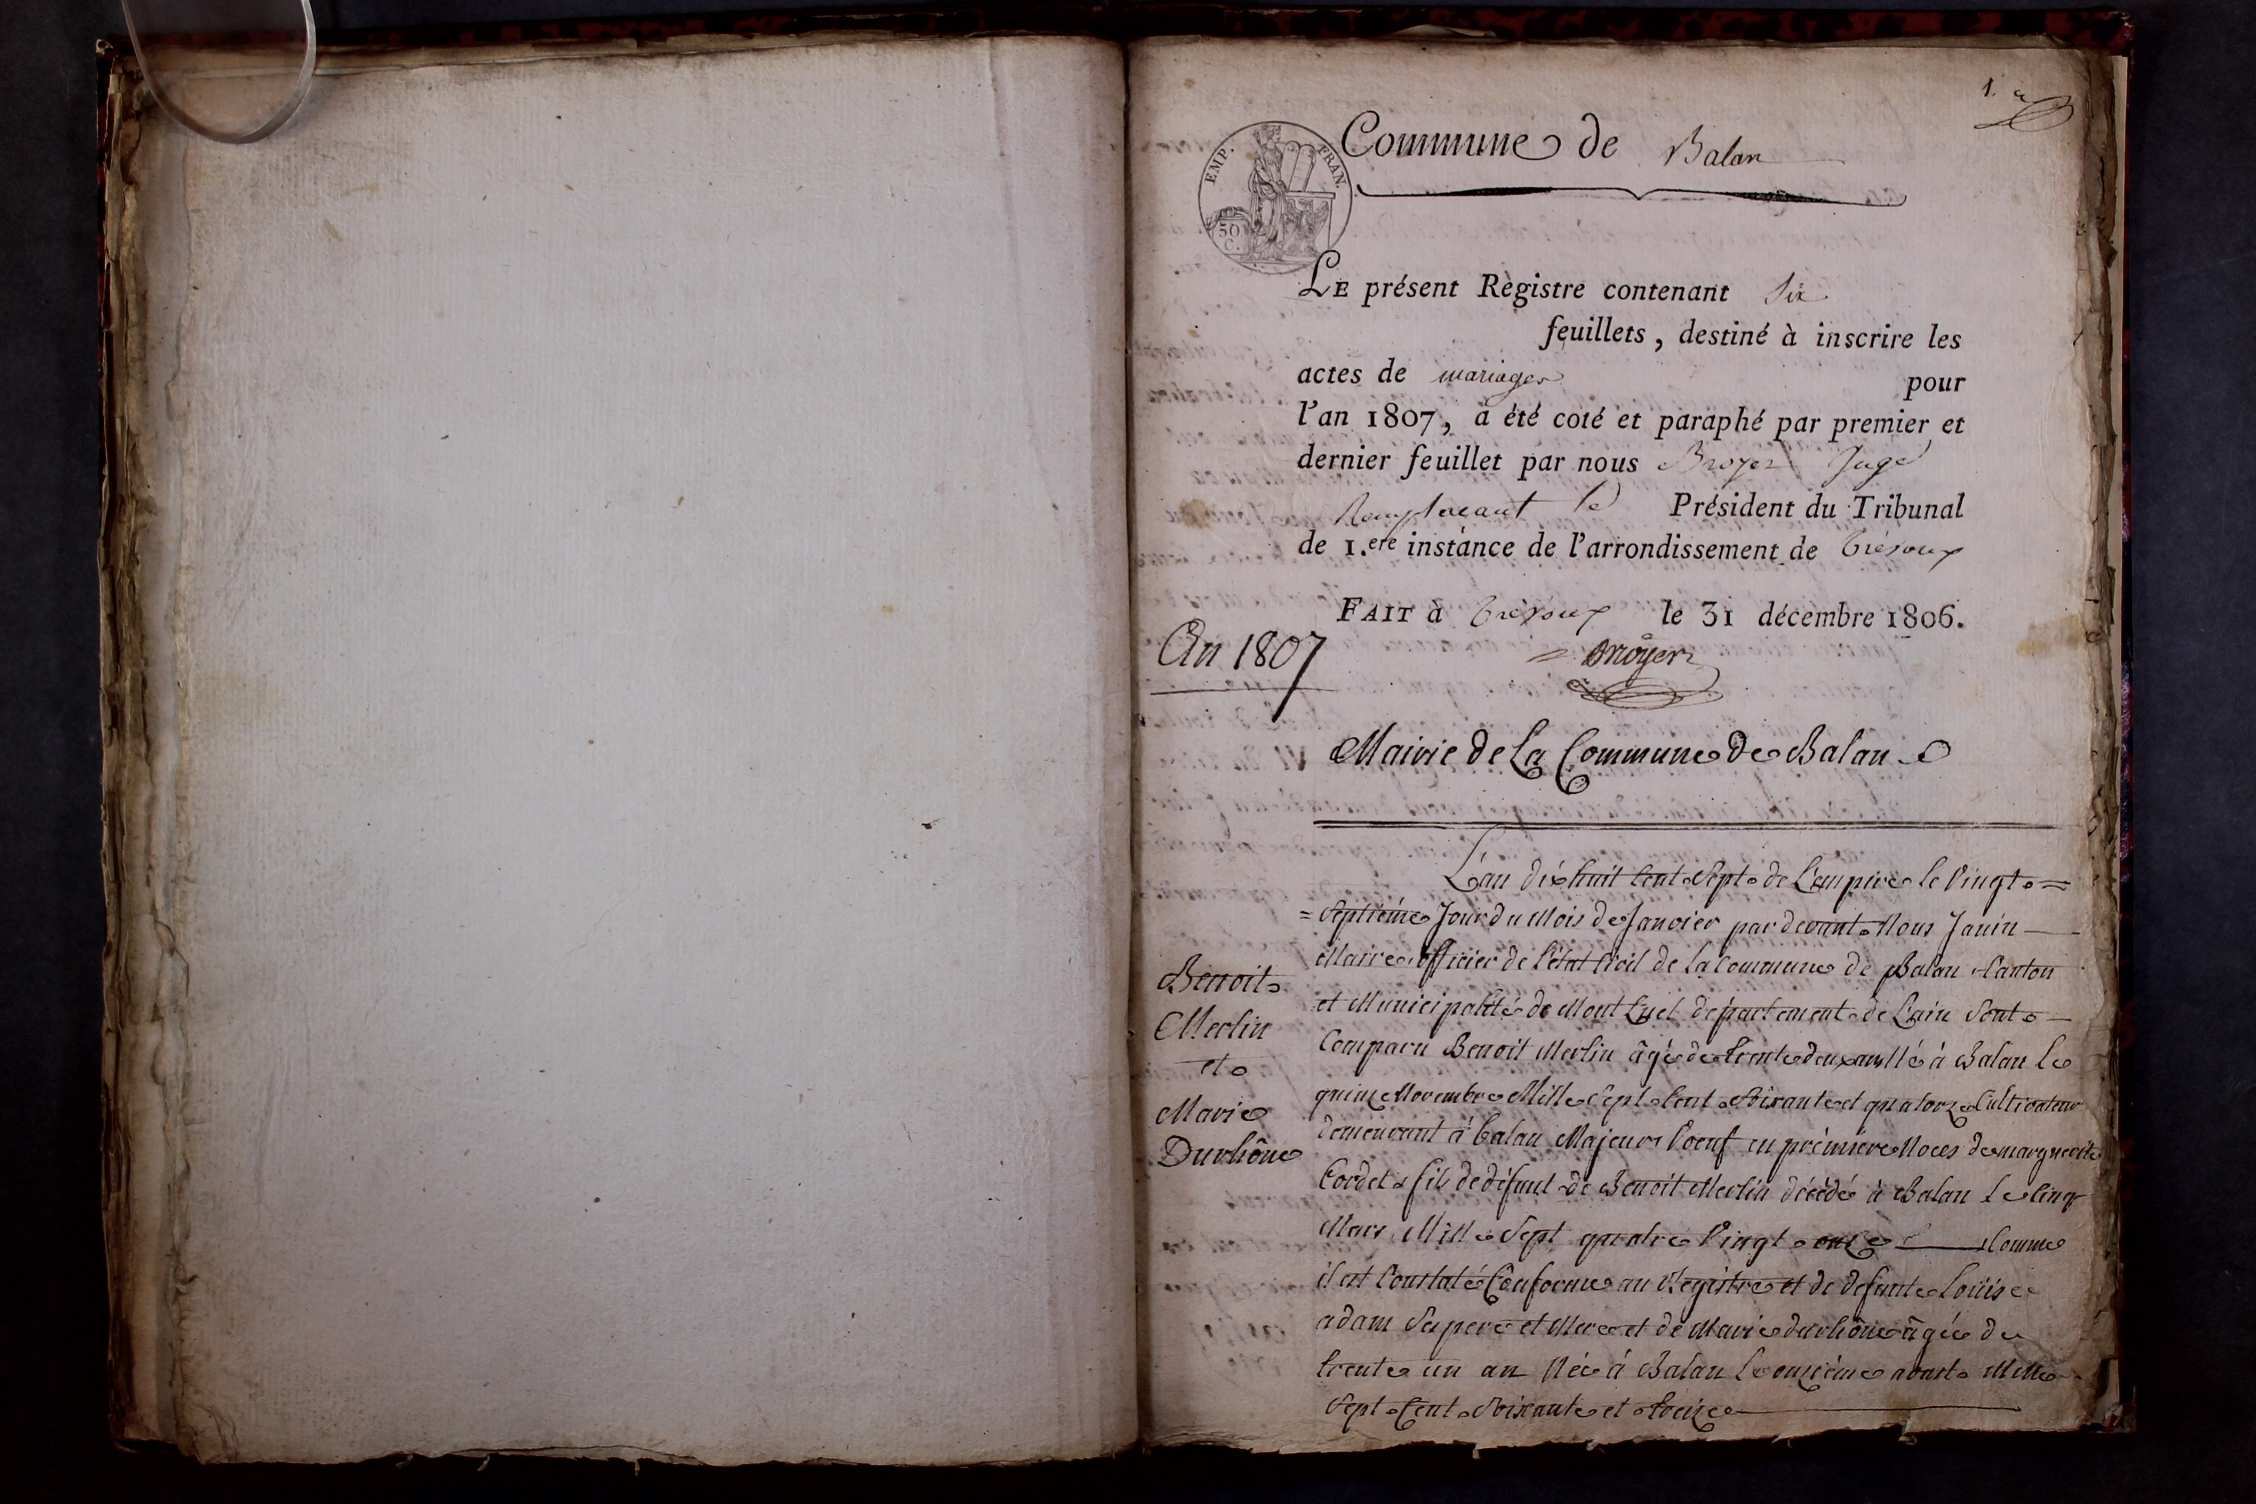 1.
Commune de Balan
EMP. FRAN.
50
C.
LE présent Régistre contenant six
feuillets, destiné à inscrire les
actes de mariages pour
l'an 1807, a été coté et paraphé par premier et
dernier feuillet par nous Broyer Juge
Remplacant le Président du Tribunal
de 1.ere instance de l'arrondissement de Trévoux
FAIT à Trévoux le 31 décembre 1806.
An 1807
Broyer
Mairie de La Commune de Balan
L'an dixhuit Cent Sept de L'empire le Vingt =
= Septième Jour du Mois de Janvier par devant Nous Janin
Maire officier de l'état Civil de la Commune de Balan Canton
et Municipalité de Mont Luel département de L'ain Sont
Comparu Benoit Merlin âgé de trente deux ans Né à Balan le
quinze Novembre Mille Sept Cent Soixante et quatorze Cultivateur
demeurant à balan Majeur Voeuf en première Noces de marguerite
Cordet fils de défunt de Benoit Merlin décédé à Balan Le Cinq
Mars Mille Sept quatre Vingt onze Comme
il est Constaté Conforme au Registre et de defunte Loüise
adam Ses pere et Mere et de Marie durhône âgée de
trente un an Née à Balan Le onzième aoust Mille
Sept Cent Soixante et Seize
Benoit
Merlin
et
Marie
Durhône